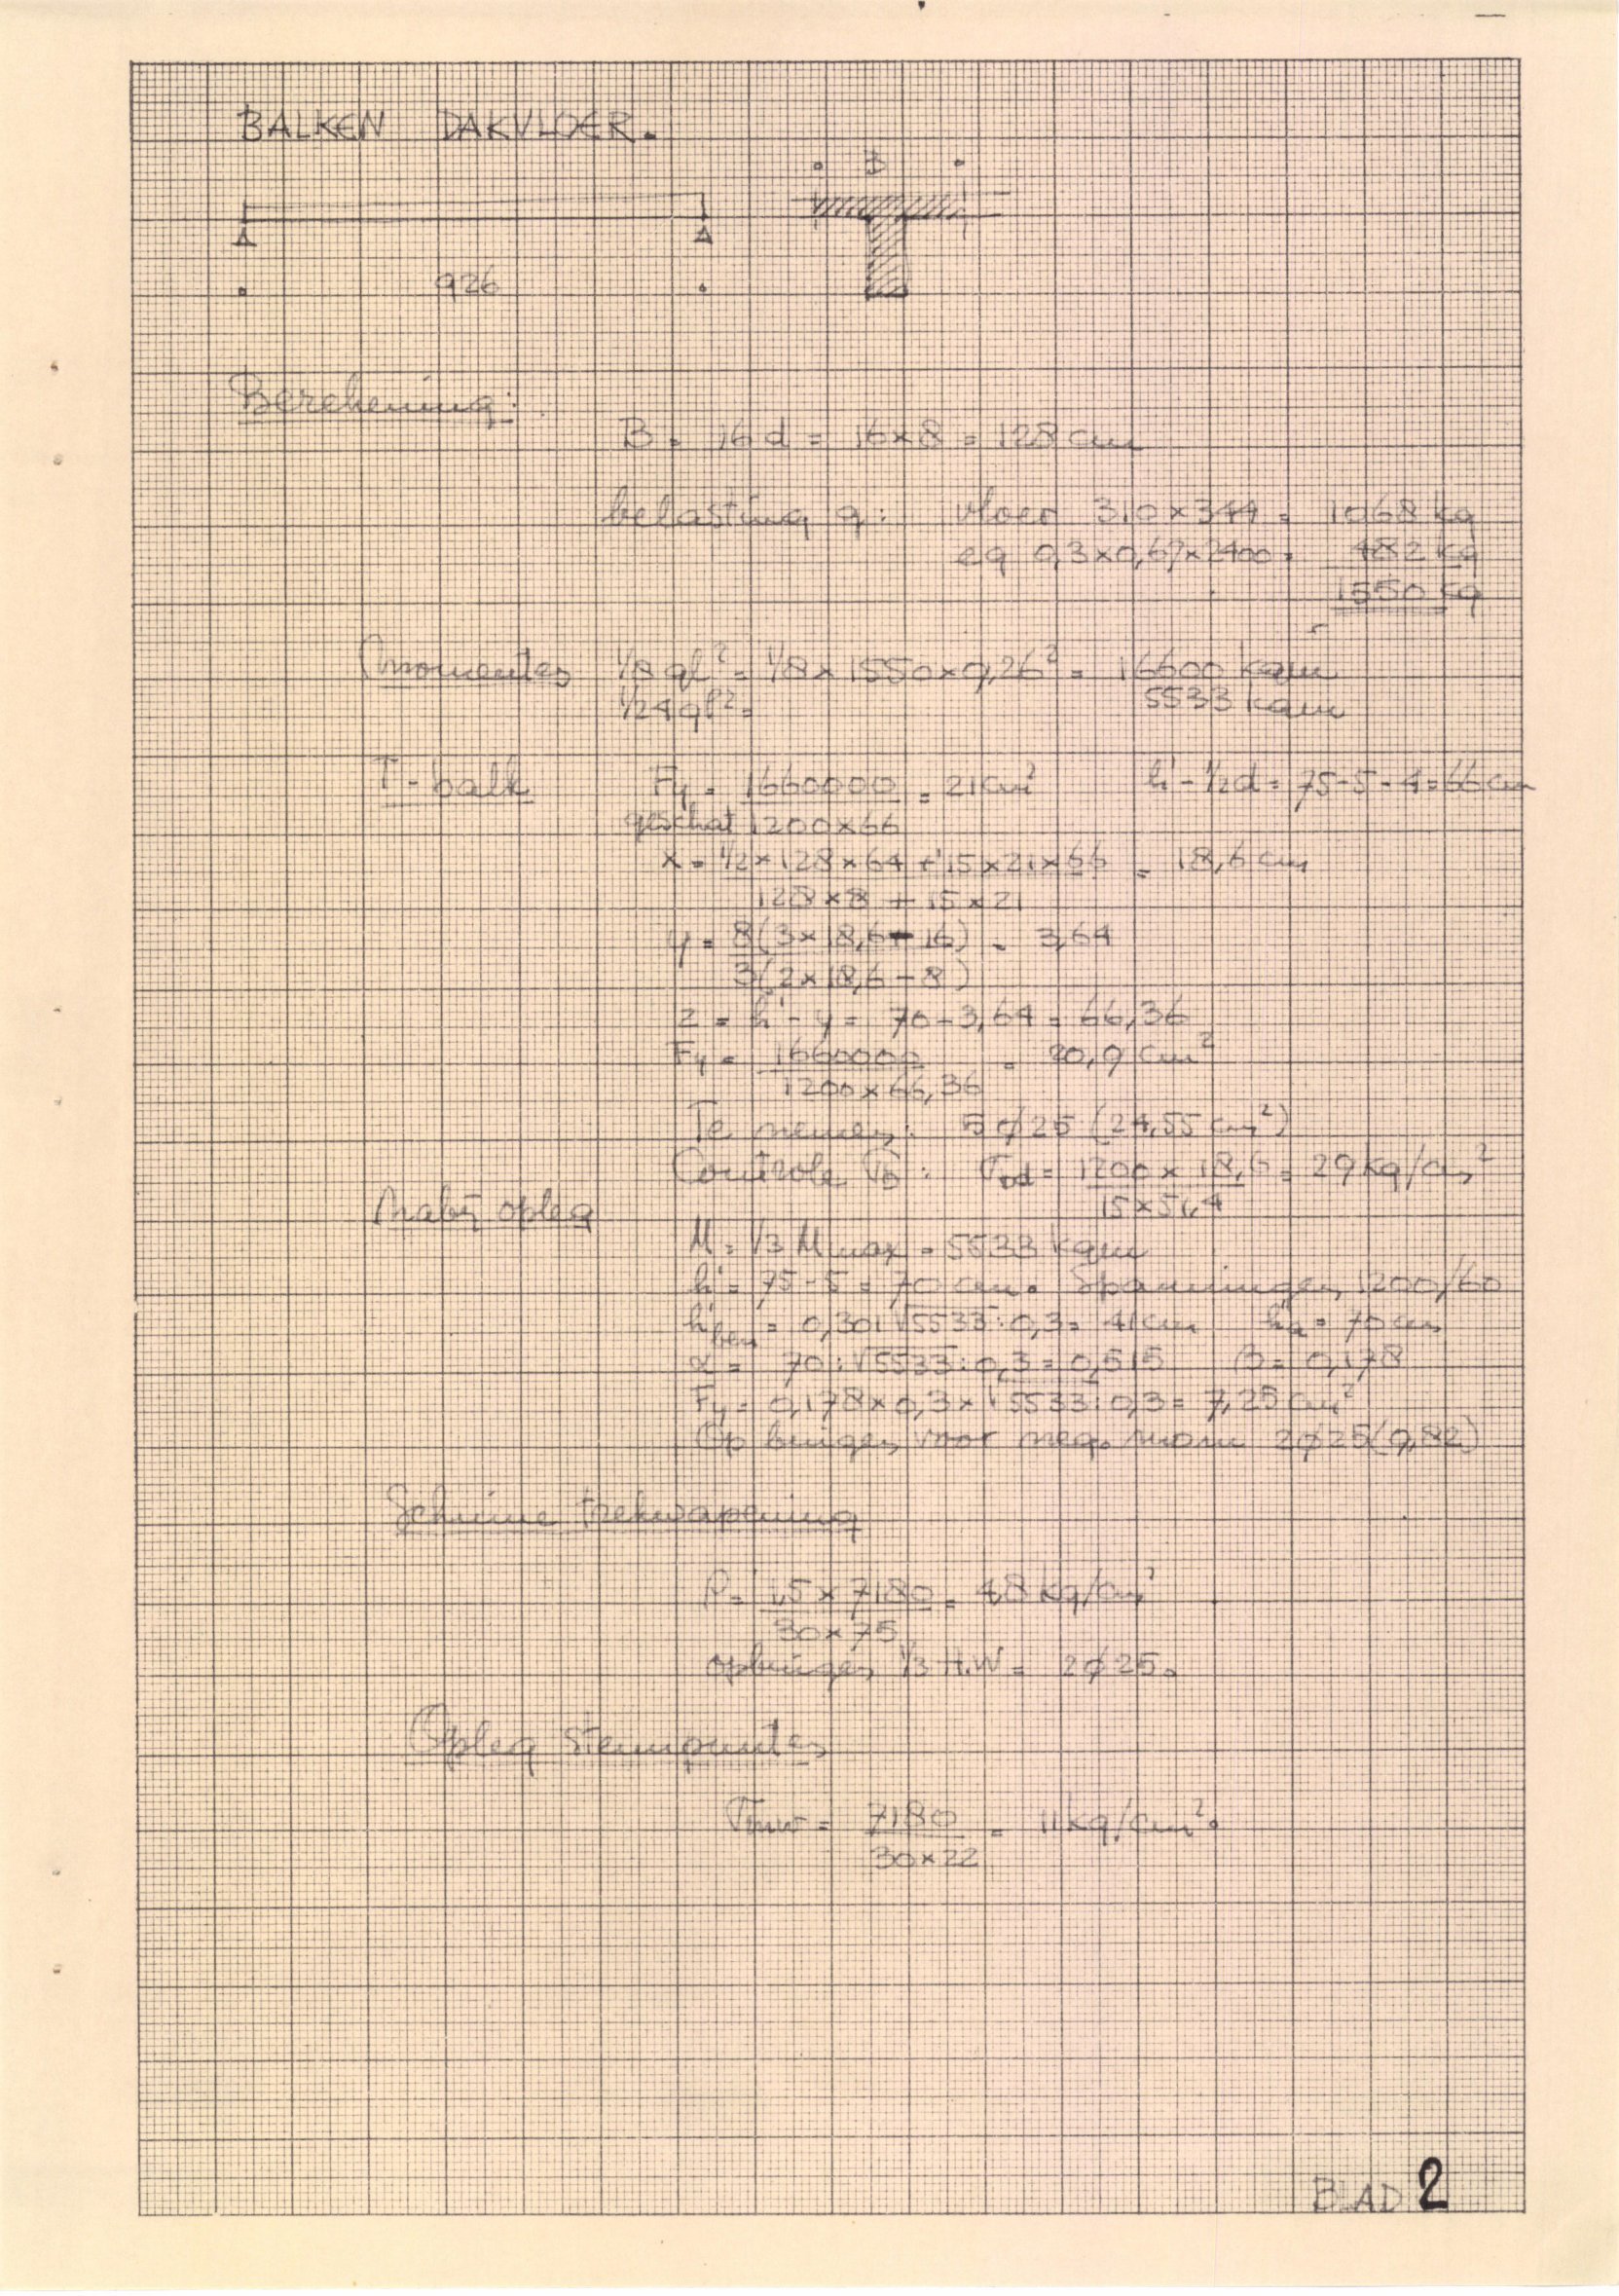 BALKEN DAKVLOER.
B
926
Berekening:
B = 16 d = 16 x 8 = 128 cm
belasting q: vloer 3.10 x 344 = 1068 kg
eg 0,3 x 0,67 x 2400 = 482 kg
1550 kg
Momenten 1/8 ql² = 1/8 x 1550 x 9,26² = 16600 kgm
1/24 ql² = 5533 kgm
T-balk Fy = 1660000 = 21 cm² h' - ½d = 75-5-4 = 66 cm
geschat 1200 x 66
x = ½ x 128 x 64 + 15 x 21 x 66 = 18,6 cm
128 x 8 + 15 x 21
y = 8(3 x 18,6 - 16) = 3,64
3(2 x 18,6 - 8)
z = h' - y = 70 - 3,64 = 66,36
Fy = 1660000 = 20,9 cm²
1200 x 66,36
Te nemen: 5ø25 (24,55 cm²)
Controle σb: σbd = 1200 x 18,6 = 29 kg/cm²
15 x 51,4
Nabij opleg
M = 1/3 M max = 5533 kgm
h' = 75-5 = 70 cm. Spanningen 1200/60
h'ben = 0,301 √5533:0,3 = 41 cm ha = 70 cm
α = 70:√5533:0,3 = 0,515 β = 0,178
Fy = 0,178 x 0,3 x √5533:0,3 = 7,25 cm²
Op buigen voor neg. mom 2ø25 (9,82)
Schuine trekwapening
ρ = 1,5 x 7180 = 4,8 kg/cm²
30 x 75
opbuigen 1/3 H.W = 2ø25.
Opleg Steunpunten
σmw = 7180 = 11 kg/cm².
30 x 22
BLAD 2